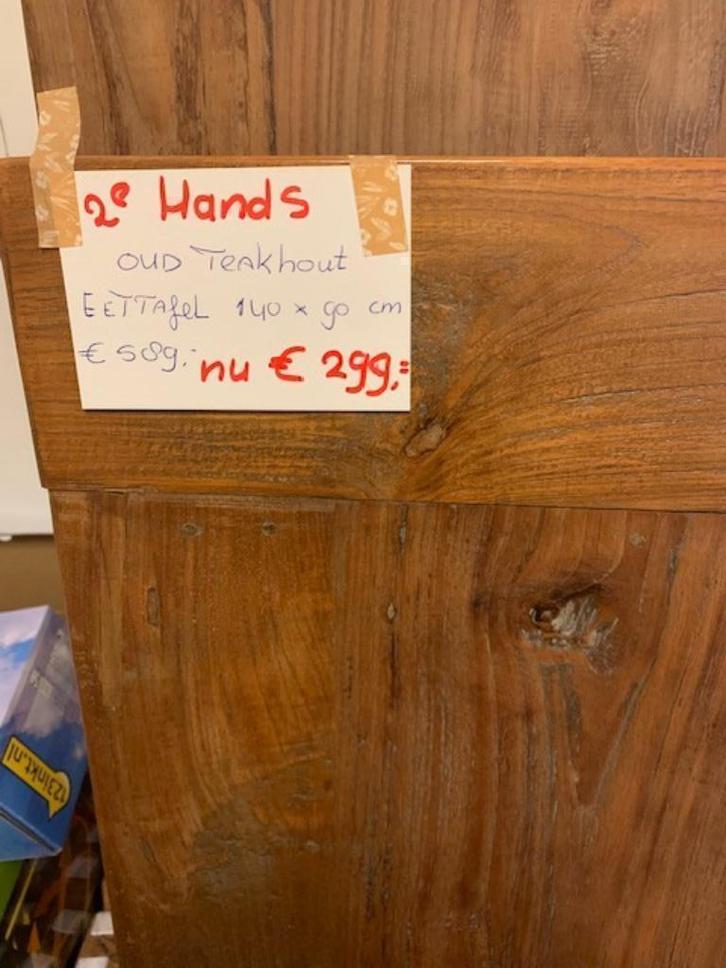 2e Hands
OUD Teakhout
EETTAfeL 140 x 90 cm
€ 589,- nu € 299,=
123inkt.nl